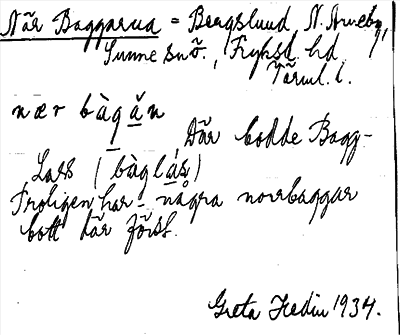 När Baggarna = Bergslund, N. Arneby,
Sunne snö., Fryksd. hd.
Värml. l.
nær bàgăn
Där bodde Bagg-
Lars (bàglás)
Troligen har några norrbaggar
bott där först.
Greta Hedin 1934.